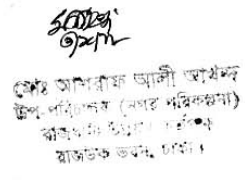 মোঃ আশরাফ আলী আখন্দ
উপ-পরিচালক (নগর পরিকল্পনা)
রাজধানী উন্নয়ন কর্তৃপক্ষ
রাজউক ভবন, ঢাকা ।